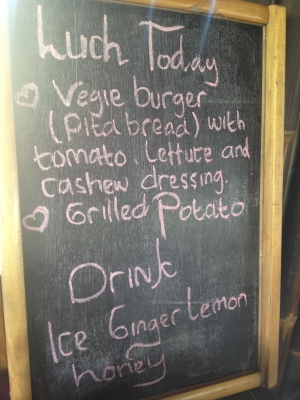 Luch Today
Vegie burger
(pita bread) with
tomato. Lettuce and
cashew dressing.
Grilled Potato
Drink
Ice Ginger Lemon
honey